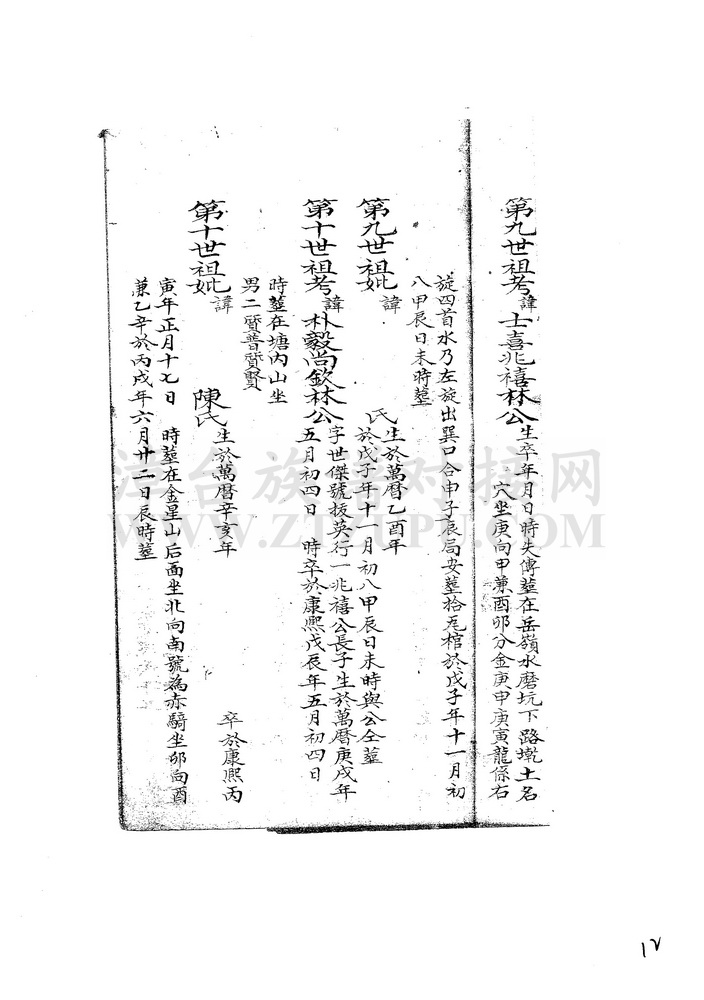 第九世祖考諱士喜兆禧林公生卒年月日時失傳塟在岳嶺水磨坑下路墩土名
穴坐庚向甲兼酉卯分金庚申庚寅龍係右
旋四首水乃左旋出巽口合申子辰局安塟拾尾棺於戊子年十一月初
八甲辰日未時塟
第九世祖妣諱 氏生於萬曆乙酉年
於戊子年十一月初八甲辰日未時與公仝塟
第十世祖考諱朴毅尚欽林公字世傑號拔英行一兆禧公長子生於萬曆庚戌年
五月初四日 時卒於康熙戊辰年五月初四日
時塟在塘內山坐
男二質普質賢
第十世祖妣諱 陳氏生於萬曆辛亥年
卒於康熙丙
寅年正月十七日 時塟在金星山后面坐北向南號為赤騎坐卯向酉
兼乙辛於丙戌年六月廿二日辰時塟
17